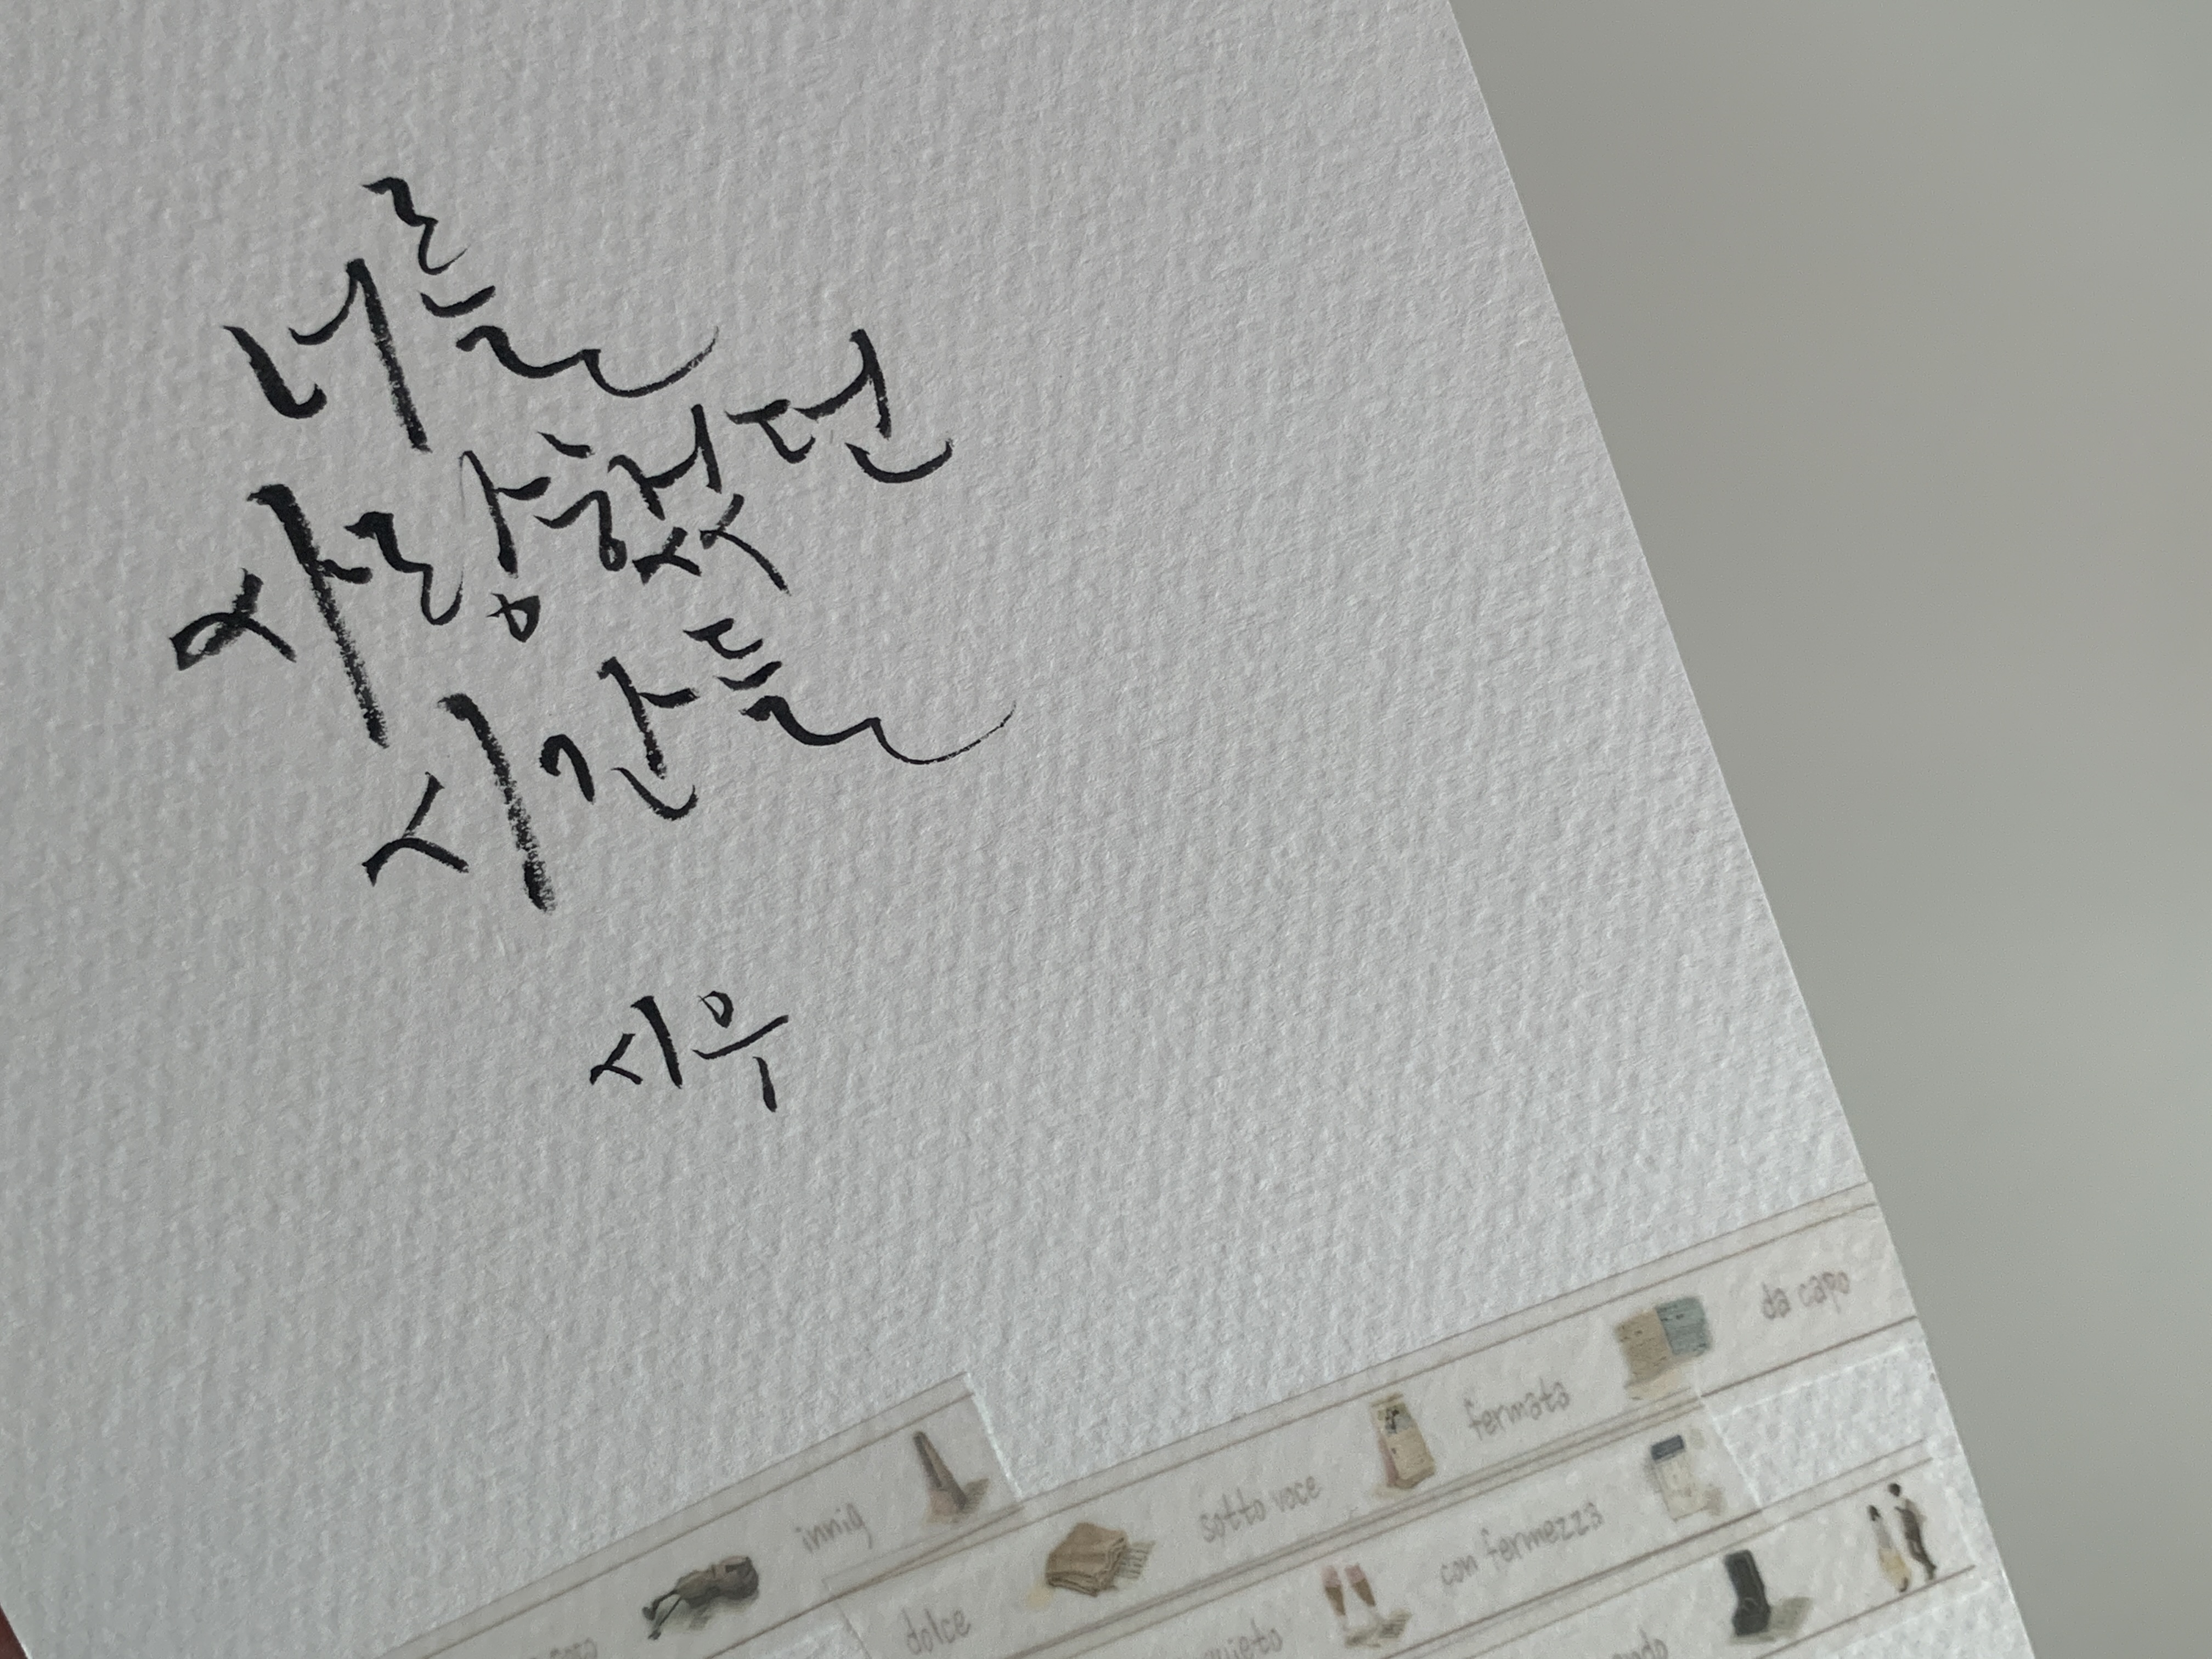 너를
사랑했던
시간들
시우
da capo
fermata
sotto voce
innig
con fermezza
dolce